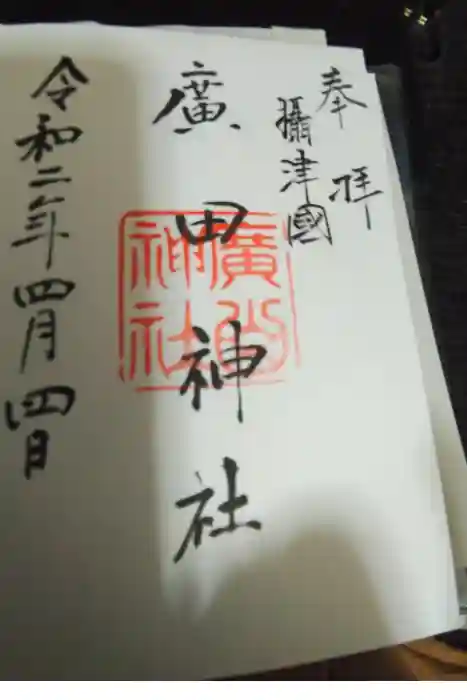 奉拝
攝津國
廣田神社
令和二年四月四日